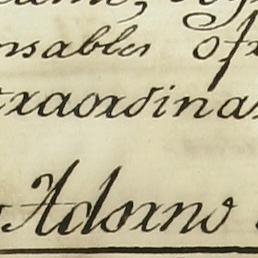 nsables of
traordina
Adorno